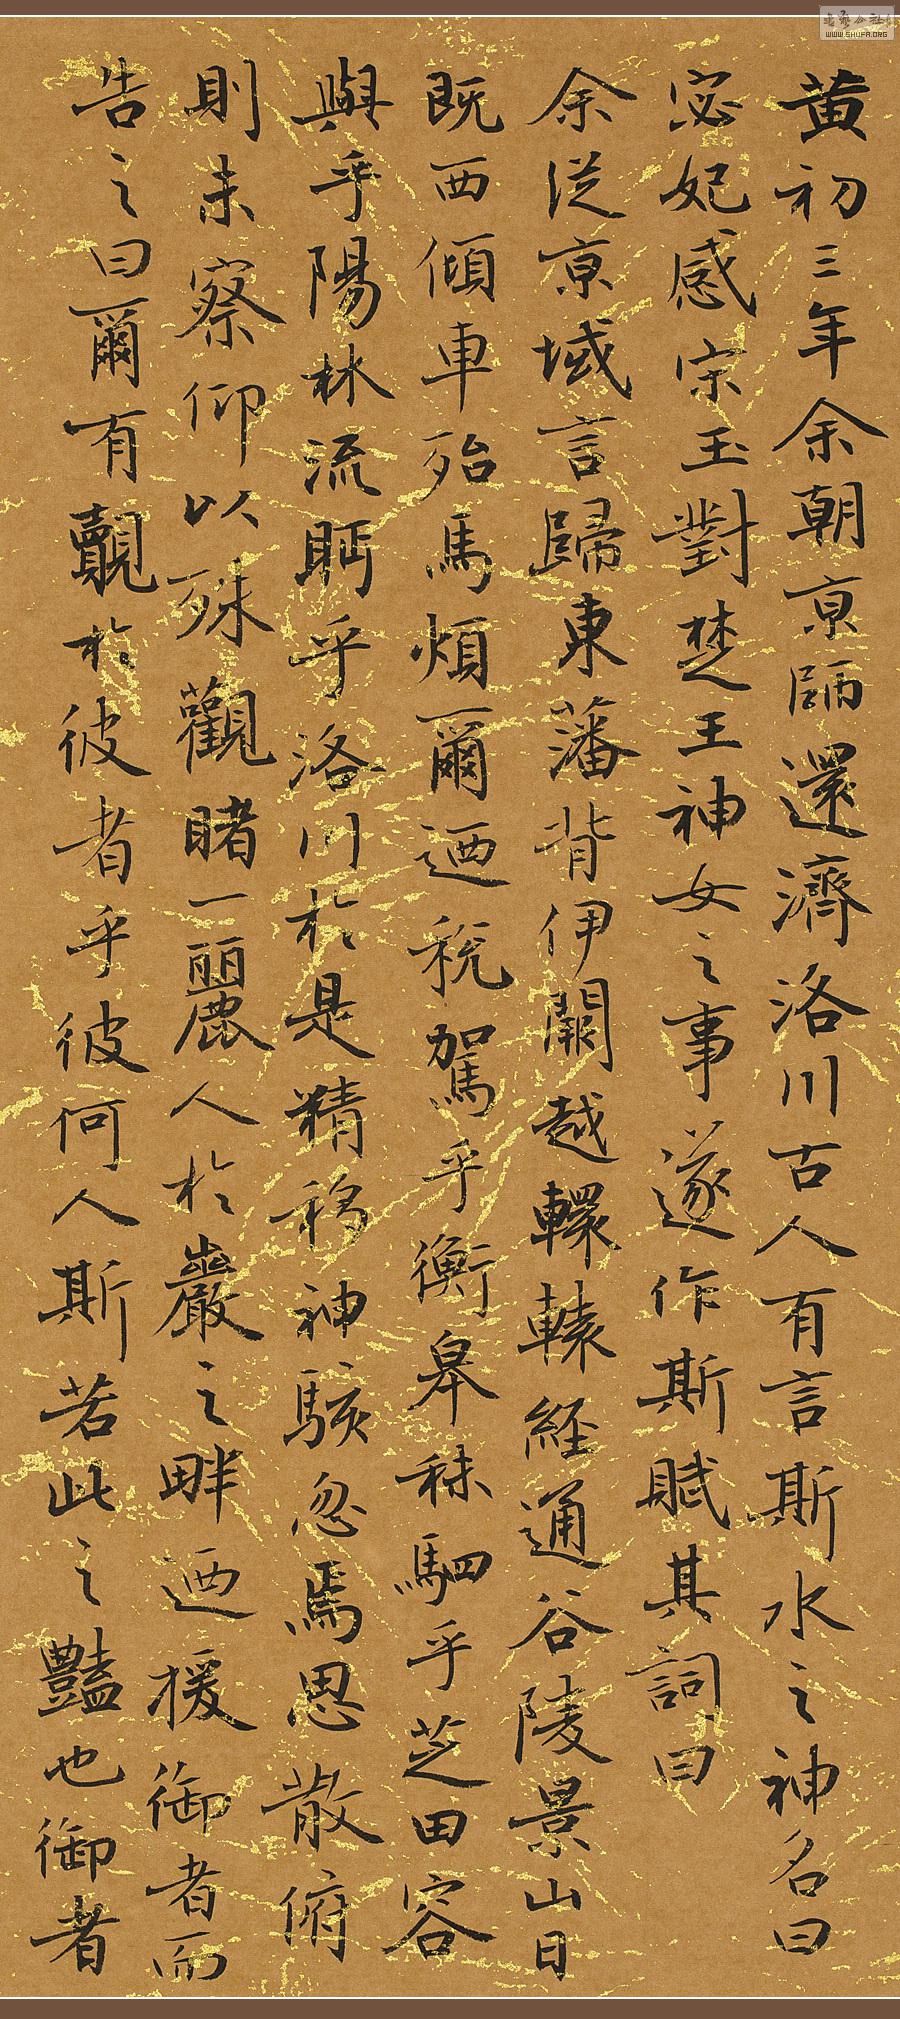 黄初三年余朝京師還濟洛川古人有言斯水之神名曰
宓妃感宋玉對楚王神女之事遂作斯賦其詞曰
余従京域言歸東藩背伊闕越轘轅経通谷陵景山日
既西傾車殆馬煩爾迺税駕乎衡皋秣駟乎芝田容
與乎陽林流眄乎洛川於是精移神駭忽焉思散俯
則未察仰以殊觀睹一麗人於巖之畔迺援御者而
告之曰爾有覿於彼者乎彼何人斯若此之豔也御者
WWW.SHUFA.ORG